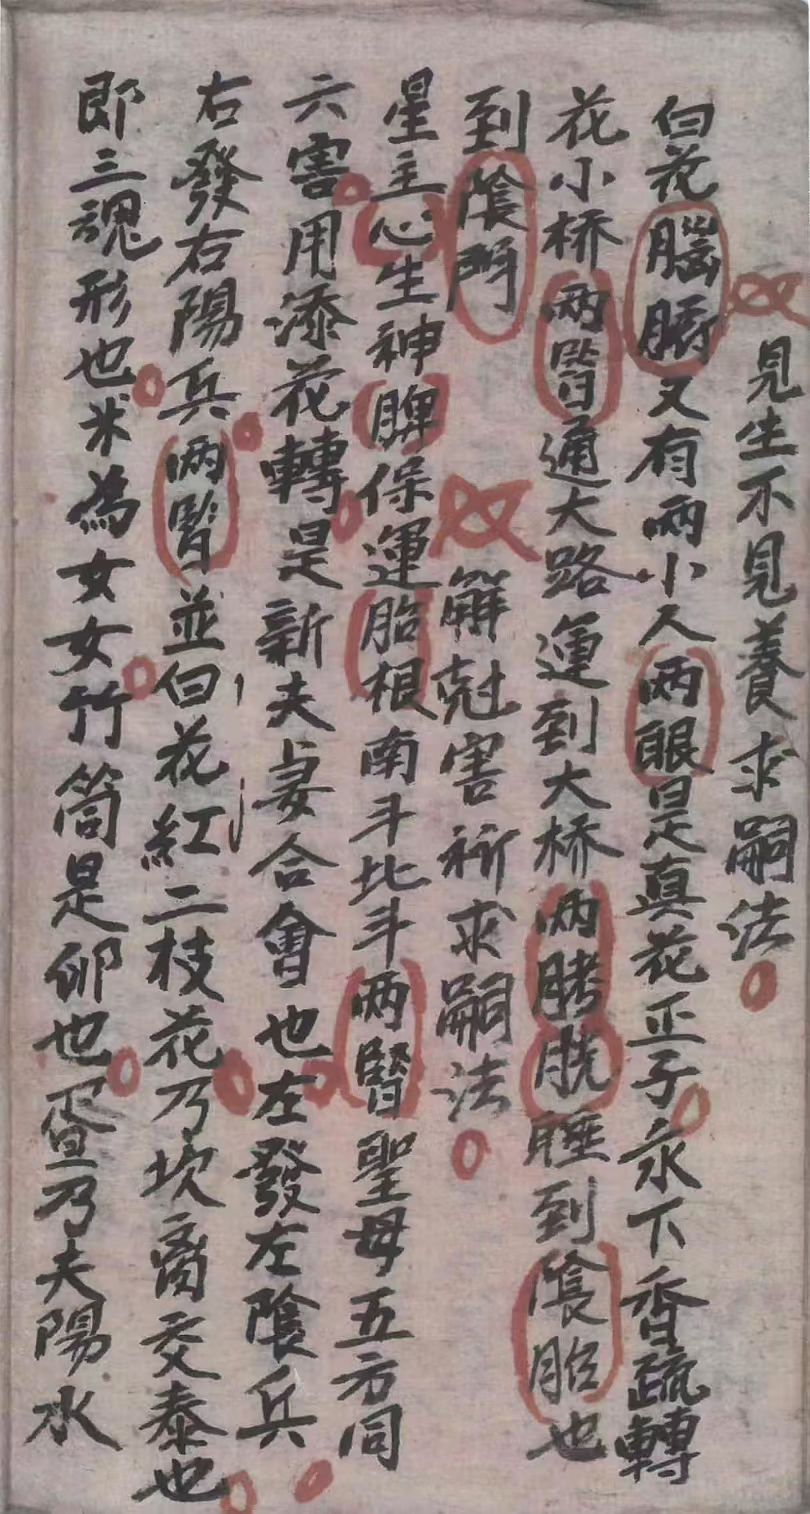 見生不見養求嗣法
白花腦髒又有兩小人两眼是真花正子永下香疏轉
花小桥两腎通大路運到大桥两膀胱睡到陰胎也
到陰門
解尅害祈求嗣法
星主心生神脾保運胎根南斗北斗两腎聖母五方同
六害用添花轉是新夫妻合會也左發左陰兵
右發右陽兵两腎並白花紅二枝花乃坎离交泰也
即三魂形也米為女女竹筒是卵也蛋乃夫陽水